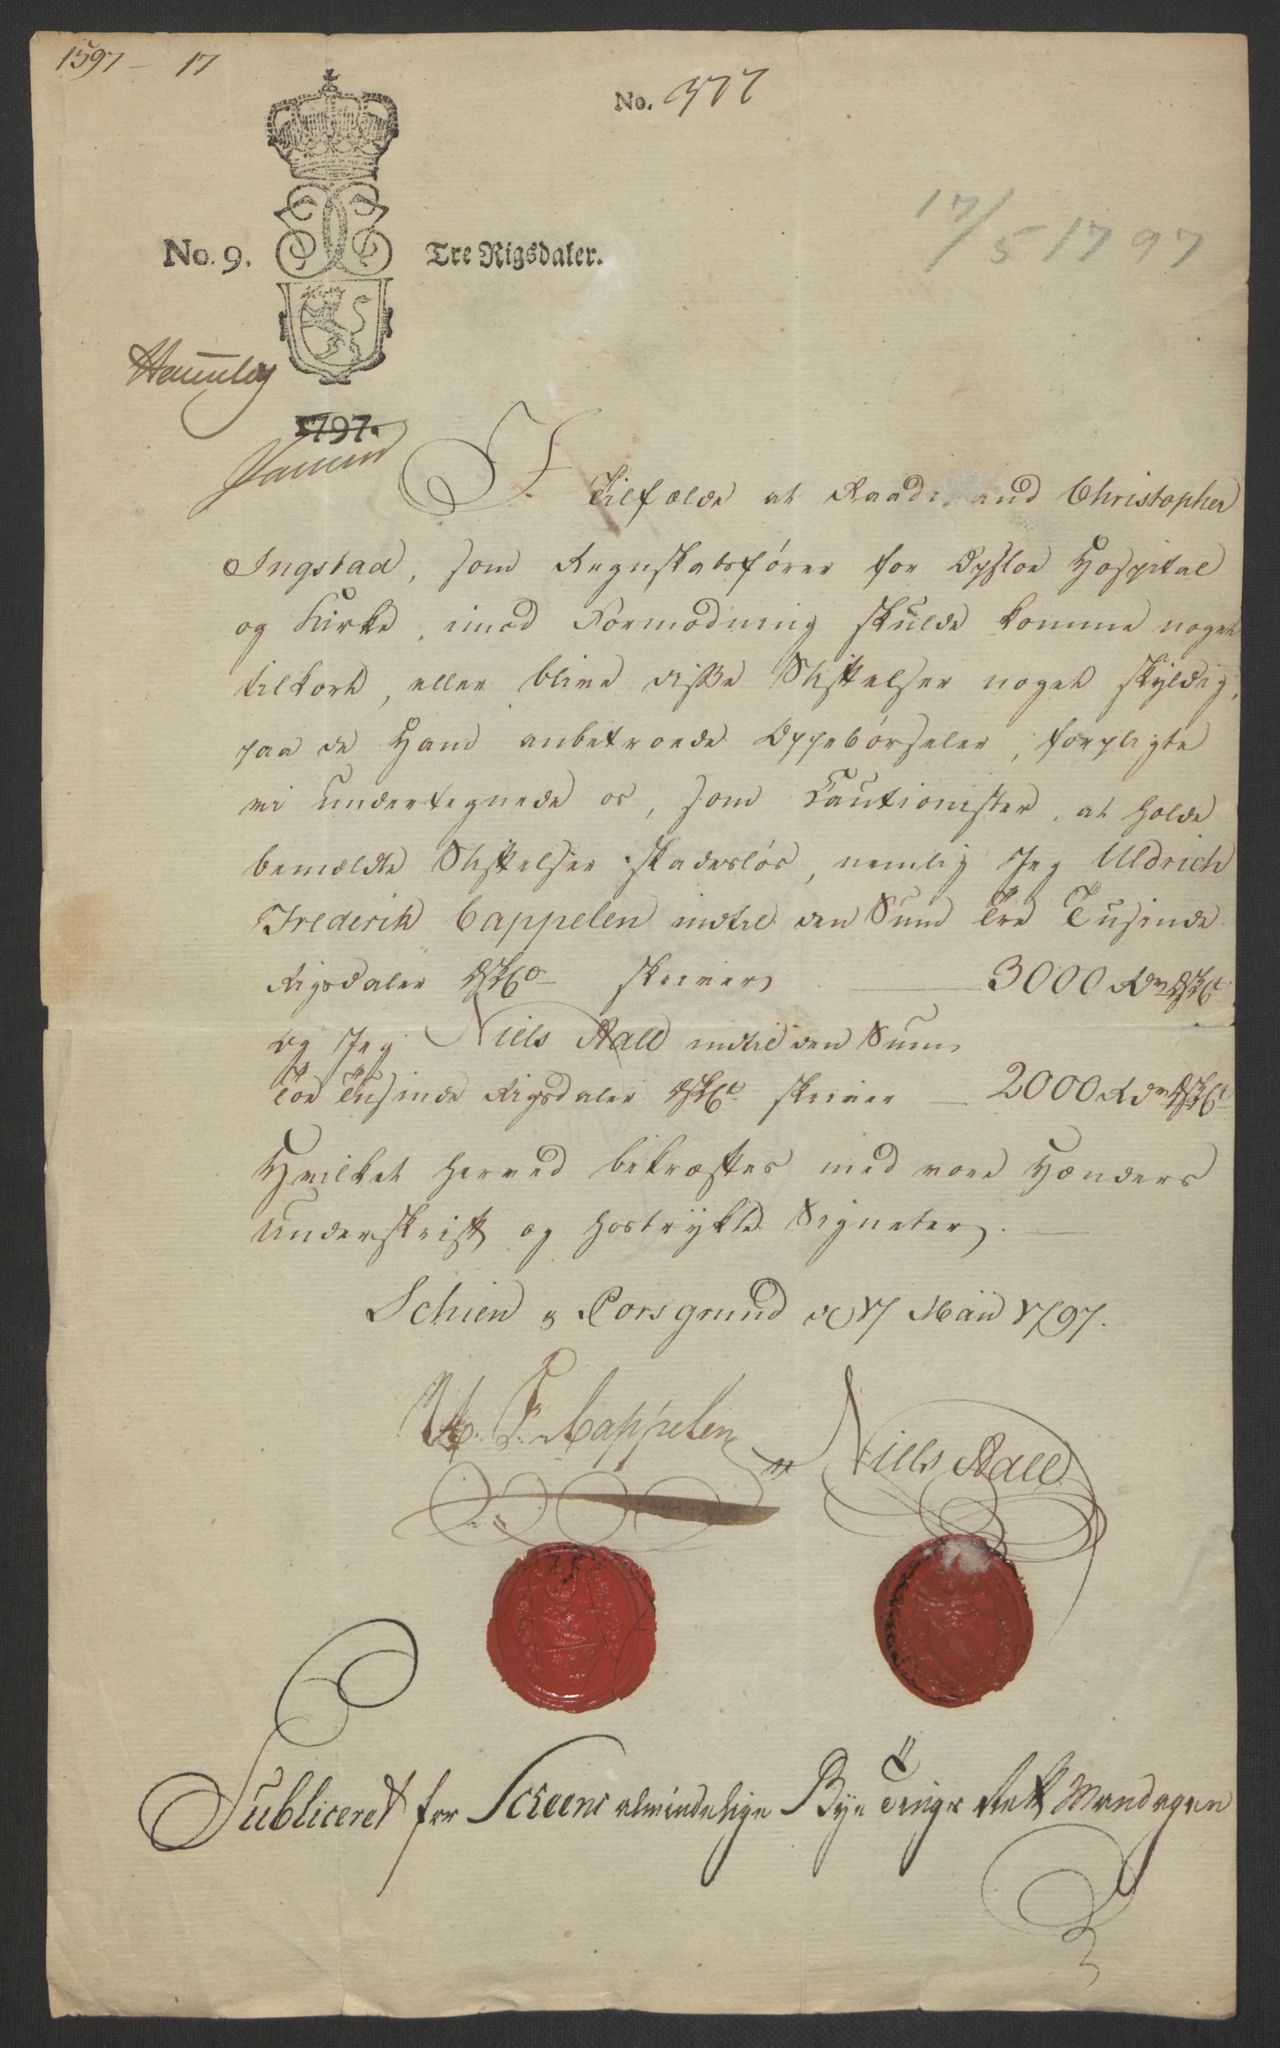 1597 - 17
No. 377
17/5 1797
No. 9. Tre Rigsdaler.
1797.
I Tilfælde at Raadmand Christopher
Ingstad, som Regnskabsfører for Opsloe Hospital
og Kirke, imod Formodning skulde komme noget
tilkort, eller blive disse Stiftelser noget skyldig,
paa de Ham anbetroede Oppebørseler, forpligte
vi undertegnede os, som Cautionister, at holde
bemældte Stiftelser skadesløs, nemlig Jeg Uldrich
Frederich Cappelen indtil den Sum Tre Tusinde
Rigsdaler skriver 3000 Rdr
og Jeg Niels Aall indtil den Sum
Toe Tusinde Rigsdaler skriver 2000 Rdr
Hvilket herved bekræftes med vore Hænders
Underskrift og hostrykte Signeter.
Schien & Porsgrund d 17 Maii 1797.
U. F. Cappelen Niels Aall
Publiceret for Scheens almindelige Bye Tings Rett Mandagen